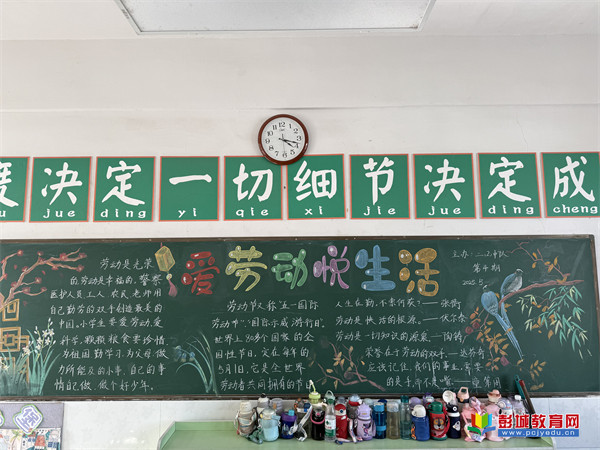 度决定一切细节决定成
u jue ding yi qie xi jie jue ding cheng
爱劳动悦生活
主办:二.2中队
第4期
2025.5
劳动是光荣
的,劳动是幸福的,警察
医护人员工人 农民 老师用
自己勤劳的双手创造最美的
中国。小学生要爱劳动,爱
科学,颗颗粮食要珍惜
为祖国勤学习,为父母做
力所能及的小事,自己的事
情自己做,做个好少年。
劳动节又称五一国际
劳动节
世界上80多个国家的全
国性节日。定在每年的
5月1日,它是全世界
劳动者共同拥有的节日
人生在勤,不索何获?——张衡
劳动是快活的根源。——伏尔泰
劳动是一切知识的源泉——陶铸
荣誉在于劳动的双手——达芬奇
应该记住,我们的事业,需要
的是手,而不是嘴
彭城教育网
www.pcjyedu.cn